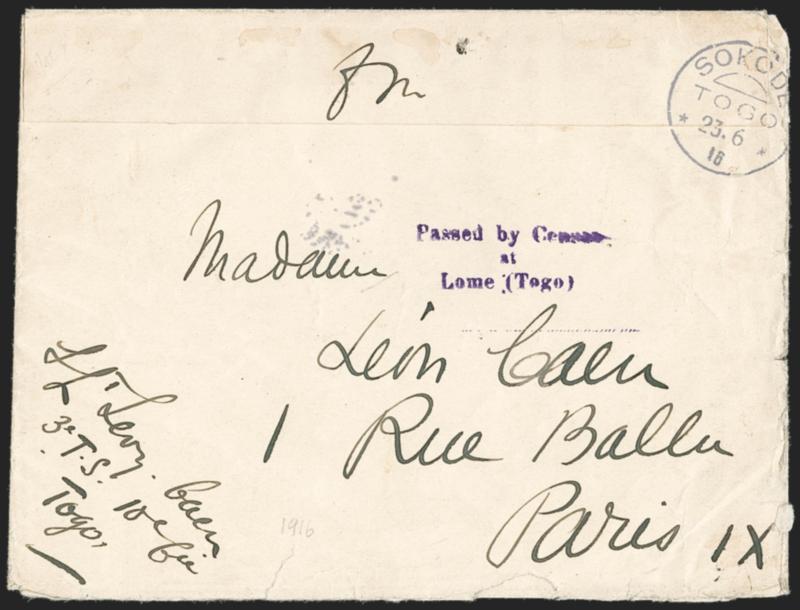 F m
SOKODE
TOGO
* 23.6 *
16
Passed by Censor
at
Lome (Togo)
Madame
Léon Caen
1 Rue Ballu
Paris IX
Lt Levy. Caen
3e T.S. 10e Cie
Togo,
1916